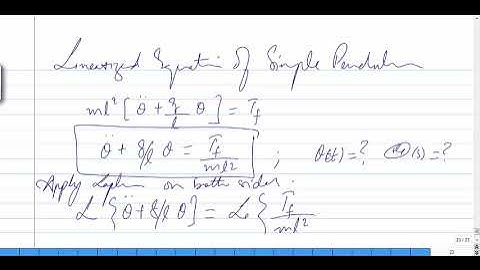 Linearized Equation of Simple Pendulum
ml² [ θ̈ + g/l θ ] = T_f
θ̈ + g/l θ = T_f/ml² ; θ(t) = ? θ(s) = ?
Apply Laplace on both sides.
L { θ̈ + g/l θ } = L { T_f/ml²